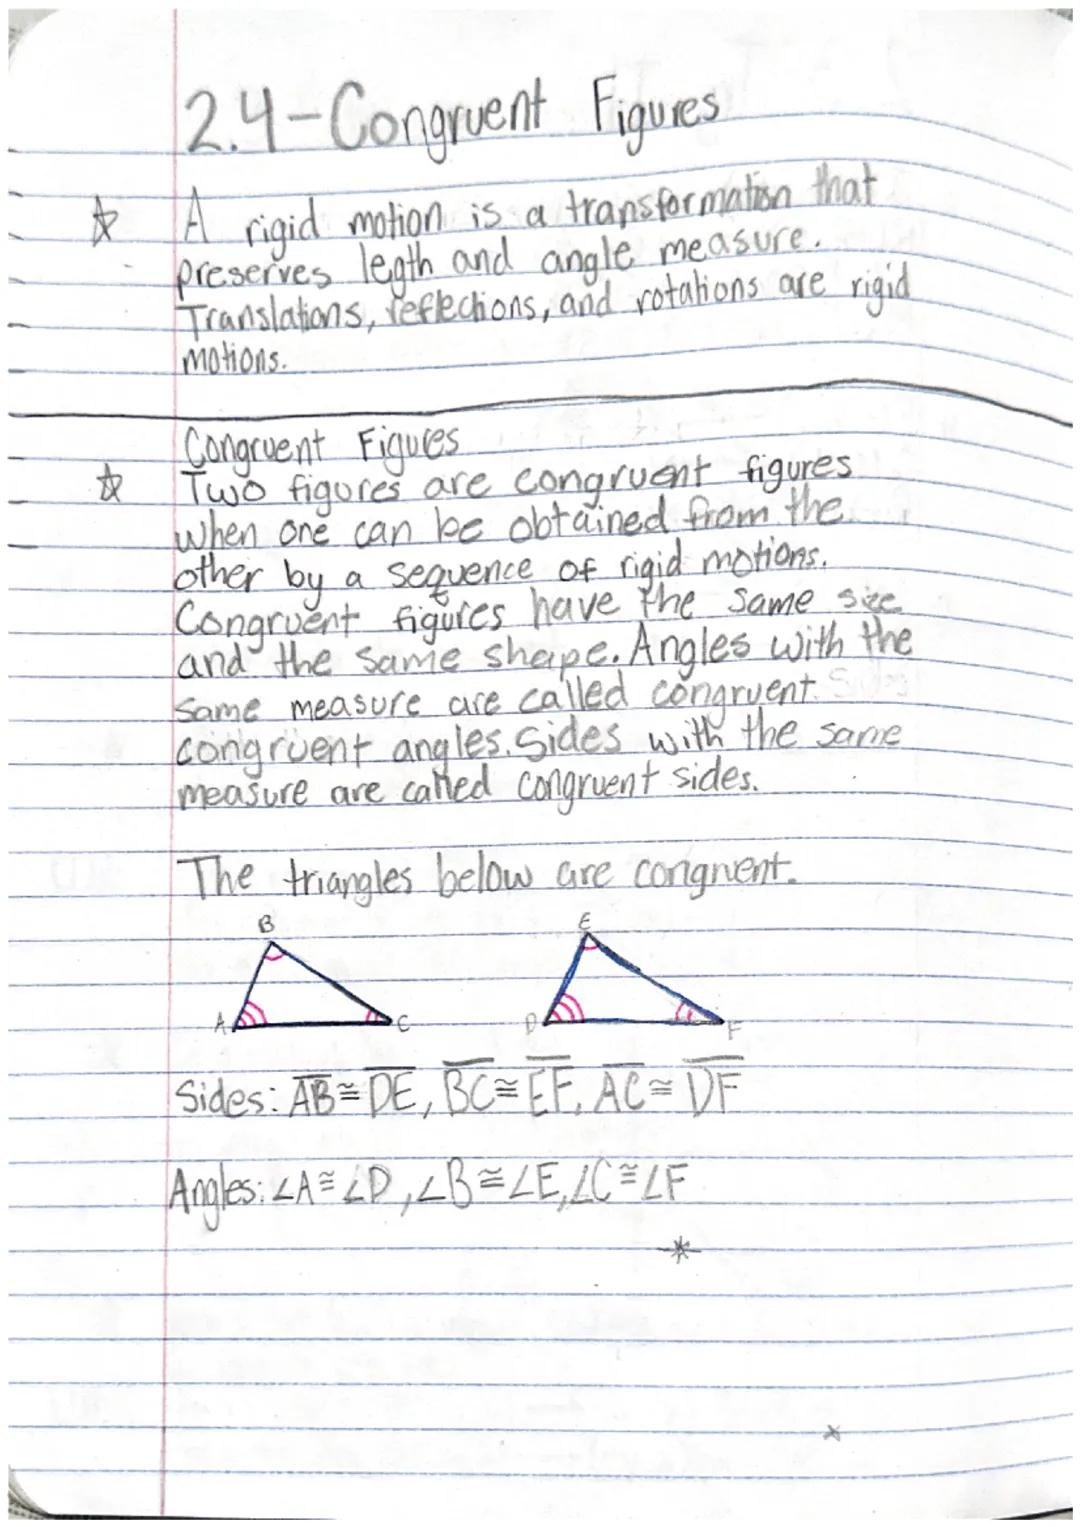 2.4-Congruent Figures
☆ A rigid motion is a transformation that
preserves legth and angle measure.
Translations, reflections, and rotations are rigid
motions.
Congruent Figures
☆ Two figures are congruent figures
when one can be obtained from the
other by a sequence of rigid motions.
Congruent figures have the same size
and the same shape. Angles with the
same measure are called congruent
congruent angles. Sides with the same
measure are called congruent sides.
The triangles below are congruent.
B E
A C D F
Sides: A̅B̅ ≅ D̅E̅, B̅C̅ ≅ E̅F̅, A̅C̅ ≅ D̅F̅
Angles: ∠A ≅ ∠D, ∠B ≅ ∠E, ∠C ≅ ∠F